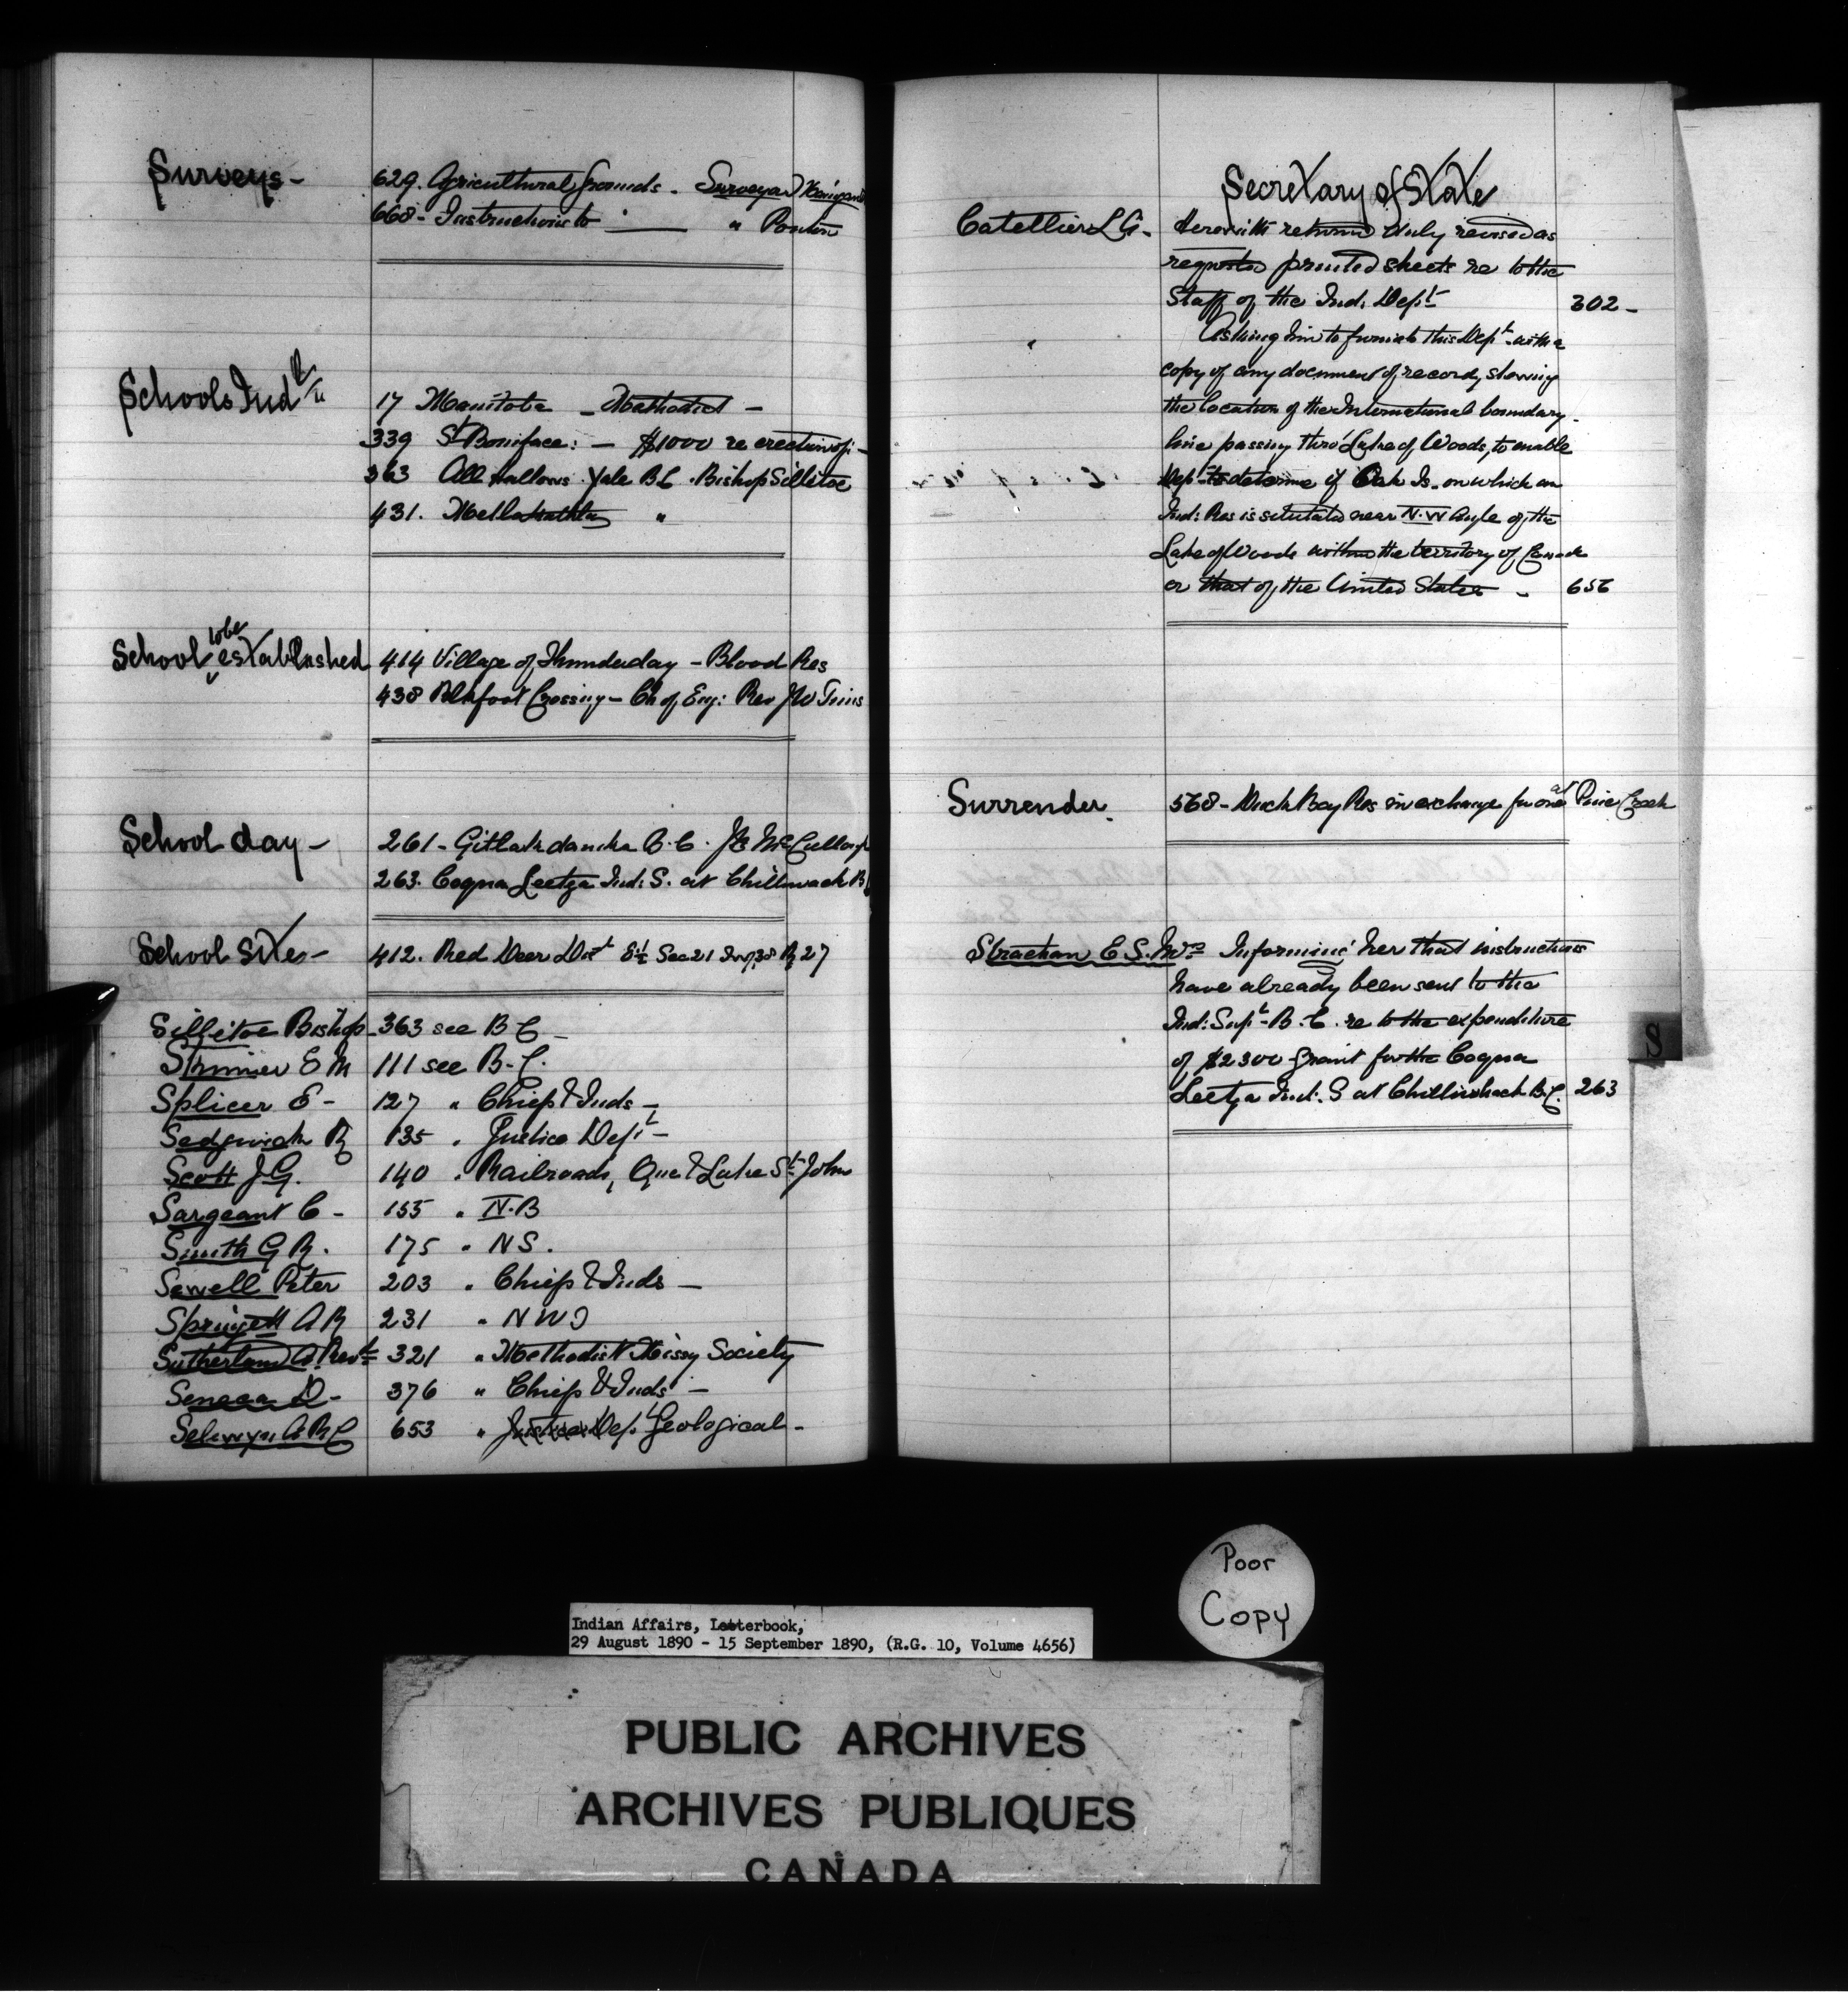 Surveys -
629. Agricultural Grounds - Surveyor
668 - Instructions to " Ponton
Schools Ind
17 Manitoba - Methodist -
339 St Boniface: - $1000 re erection of -
363 All hallows Yale B.C. Bishop Sillitoe
431. Metlakathla "
School to be established
414 Village of Thunderday - Blood Res
438 Blkfoot Crossing - Ch of Eng: Rev J W Tims
School day -
261 - Gitlakdamka B.C. J B McCullough
263. Coqua Leetza Ind: S. at Chilliwack B
School Site -
412. Red Deer Dist E½ Sec 21 Twp 38 R 27
Sillitoe Bishop - 363 see B C -
E M 111 see B.C.
Splicer E - 127 " Chiefs & Inds -
Sedgwick R 135 " Justice Dept -
Scott J.G. 140 " Railroads, Que & Lake St John
Sargeant C - 155 " N.B
Smith G R. 175 " NS.
Sewell Peter 203 " Chiefs & Inds -
Springett A R 231 " N W T
Sutherland A Revd 321 " Methodist Missy Society
Seneca D - 376 " Chiefs & Inds -
Selwyn A R C 653 " Justice Dept Geological -
Secretary of State
Catellier L A - Herewith return duly revised as
requested printed sheets re to the
Staff of the Ind. Dept 302 -
Asking him to furnish this Dept with a
copy of any document of record, showing
the location of the International boundary
line passing thro' Lake of Woods, to enable
Dept to determine if Oak Is. on which an
Ind: Res is situated near N.W Angle of the
Lake of Woods within the territory of Canada
or that of the United States - 656
Surrender.
568 - Duck Bay Res in exchange for one at Pine Creek
Strachan E. S. Mrs Informing her that instructions
have already been sent to the
Ind: Supt - B.C. re to the expenditure
of $2300 Grant for the Coqua
Leetza Ind: S at Chilliwhack B.C. 263
S
Poor
Copy
Indian Affairs, Letterbook,
29 August 1890 - 15 September 1890, (R.G. 10, Volume 4656)
PUBLIC ARCHIVES
ARCHIVES PUBLIQUES
CANADA